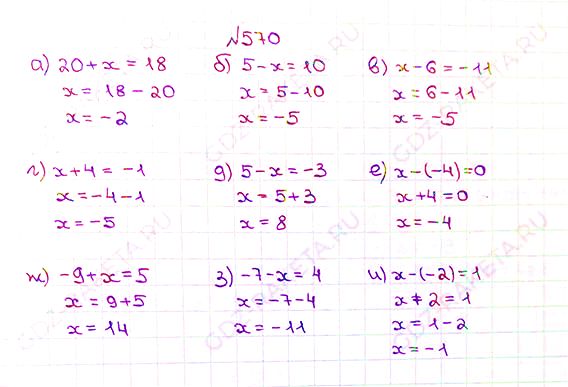 №570
а) 20 + x = 18
x = 18 - 20
x = -2
б) 5 - x = 10
x = 5 - 10
x = -5
в) x - 6 = -11
x = 6 - 11
x = -5
г) x + 4 = -1
x = -4 - 1
x = -5
д) 5 - x = -3
x = 5 + 3
x = 8
е) x - (-4) = 0
x + 4 = 0
x = -4
ж) -9 + x = 5
x = 9 + 5
x = 14
з) -7 - x = 4
x = -7 - 4
x = -11
и) x - (-2) = 1
x + 2 = 1
x = 1 - 2
x = -1
GDZ-RAKETA.RU
GDZ-RAKETA.RU
GDZ-RAKETA.RU
GDZ-RAKETA.RU